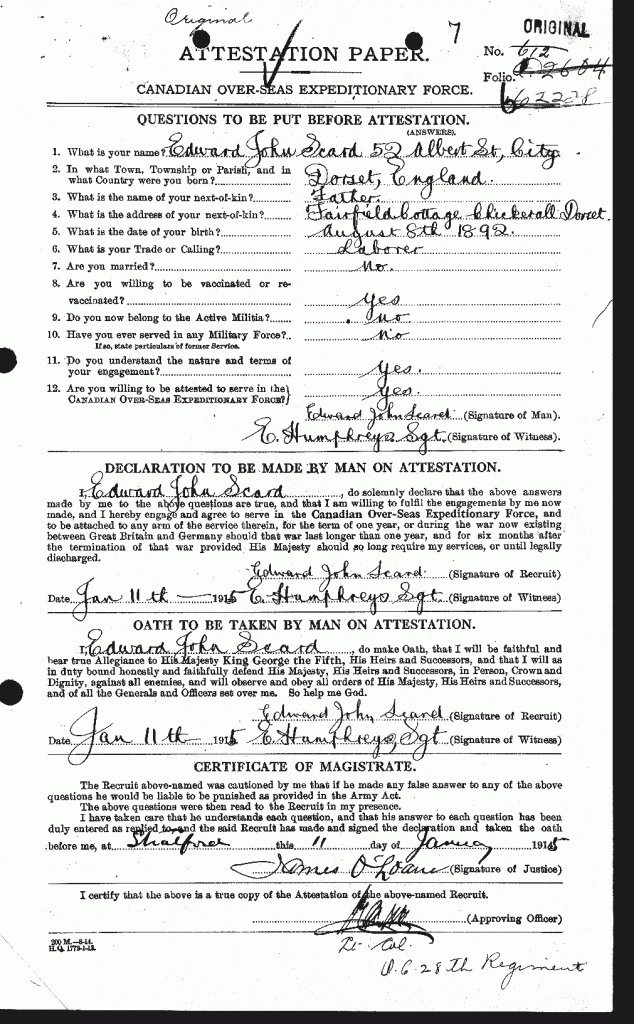 Original
7
ORIGINAL
ATTESTATION PAPER.
No. 612
Folio.
CANADIAN OVER-SEAS EXPEDITIONARY FORCE.
QUESTIONS TO BE PUT BEFORE ATTESTATION.
(ANSWERS).
1. What is your name? Edward John Scard 52 Albert St, City
2. In what Town, Township or Parish, and in
what Country were you born? Dorset, England.
3. What is the name of your next-of-kin? Father.
4. What is the address of your next-of-kin? Fairfield Cottage Chickerall Dorset.
5. What is the date of your birth? August 8th 1892.
6. What is your Trade or Calling? Laborer
7. Are you married? No.
8. Are you willing to be vaccinated or re-
vaccinated? Yes
9. Do you now belong to the Active Militia? No
10. Have you ever served in any Military Force?.. No
If so, state particulars of former Service.
11. Do you understand the nature and terms of
your engagement? Yes.
12. Are you willing to be attested to serve in the
CANADIAN OVER-SEAS EXPEDITIONARY FORCE? Yes.
Edward John Scard (Signature of Man).
E. Humphreys Sgt. (Signature of Witness).
DECLARATION TO BE MADE BY MAN ON ATTESTATION.
I, Edward John Scard, do solemnly declare that the above answers
made by me to the above questions are true, and that I am willing to fulfil the engagements by me now
made, and I hereby engage and agree to serve in the Canadian Over-Seas Expeditionary Force, and
to be attached to any arm of the service therein, for the term of one year, or during the war now existing
between Great Britain and Germany should that war last longer than one year, and for six months after
the termination of that war provided His Majesty should so long require my services, or until legally
discharged.
Edward John Scard (Signature of Recruit)
Date Jan 11th 1915 E. Humphreys Sgt. (Signature of Witness)
OATH TO BE TAKEN BY MAN ON ATTESTATION.
I, Edward John Scard, do make Oath, that I will be faithful and
bear true Allegiance to His Majesty King George the Fifth, His Heirs and Successors, and that I will as
in duty bound honestly and faithfully defend His Majesty, His Heirs and Successors, in Person, Crown and
Dignity, against all enemies, and will observe and obey all orders of His Majesty, His Heirs and Successors,
and of all the Generals and Officers set over me. So help me God.
Edward John Scard (Signature of Recruit)
Date Jan 11th 1915 E. Humphreys, Sgt (Signature of Witness)
CERTIFICATE OF MAGISTRATE.
The Recruit above-named was cautioned by me that if he made any false answer to any of the above
questions he would be liable to be punished as provided in the Army Act.
The above questions were then read to the Recruit in my presence.
I have taken care that he understands each question, and that his answer to each question has been
duly entered as replied to, and the said Recruit has made and signed the declaration and taken the oath
before me, at Stratford this 11 day of January 1915
James O'Loane (Signature of Justice)
I certify that the above is a true copy of the Attestation of the above-named Recruit.
(Approving Officer)
Lt. Col.
O.C. 28th Regiment
200 M.—8-14.
H.Q. 1772-1-13.